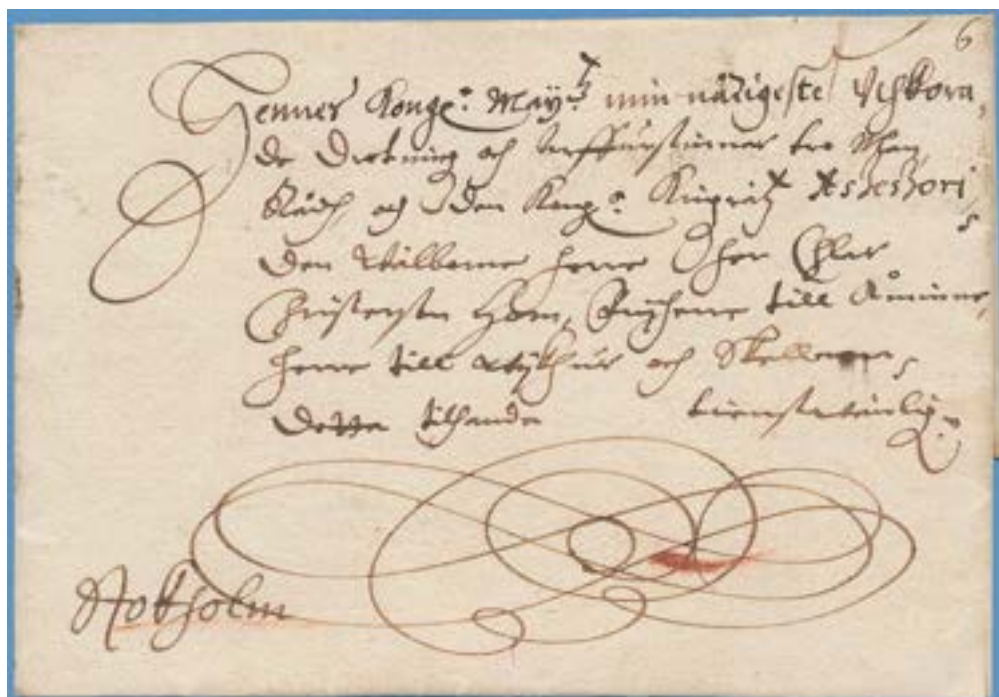 6
Hennes Kongl: Mayt:z min nådigeste Uthkora,
de Drotning och Arffurstinnas tro Man,
Rådh och den Kongl: Assessori,
Den Wälborne herre Her
Christersson Horn, Frijherre till Åminne,
herre till Wijk och
Dette tilhanda tienstwänlig:n
Stokholm